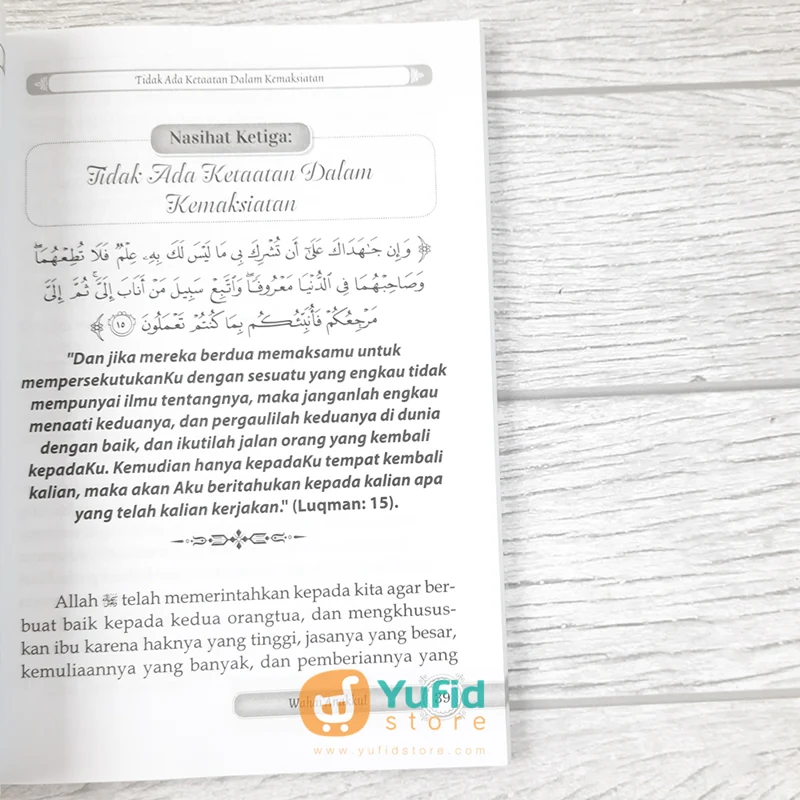 Tidak Ada Ketaatan Dalam Kemaksiatan
Nasihat Ketiga:
Tidak Ada Ketaatan Dalam
Kemaksiatan
﴿ وَإِن جَـٰهَدَاكَ عَلَىٰٓ أَن تُشْرِكَ بِى مَا لَيْسَ لَكَ بِهِۦ عِلْمٌ فَلَا تُطِعْهُمَا ۖ
وَصَاحِبْهُمَا فِى ٱلدُّنْيَا مَعْرُوفًا ۖ وَٱتَّبِعْ سَبِيلَ مَنْ أَنَابَ إِلَىَّ ۚ ثُمَّ إِلَىَّ
مَرْجِعُكُمْ فَأُنَبِّئُكُم بِمَا كُنتُمْ تَعْمَلُونَ ١٥ ﴾
"Dan jika mereka berdua memaksamu untuk
mempersekutukanKu dengan sesuatu yang engkau tidak
mempunyai ilmu tentangnya, maka janganlah engkau
menaati keduanya, dan pergaulilah keduanya di dunia
dengan baik, dan ikutilah jalan orang yang kembali
kepadaKu. Kemudian hanya kepadaKu tempat kembali
kalian, maka akan Aku beritahukan kepada kalian apa
yang telah kalian kerjakan." (Luqman: 15).
Allah telah memerintahkan kepada kita agar ber-
buat baik kepada kedua orangtua, dan mengkhusus-
kan ibu karena haknya yang tinggi, jasanya yang besar,
kemuliaannya yang banyak, dan pemberiannya yang
Wahai Anakku! 39
Yufid
store
www.yufidstore.com